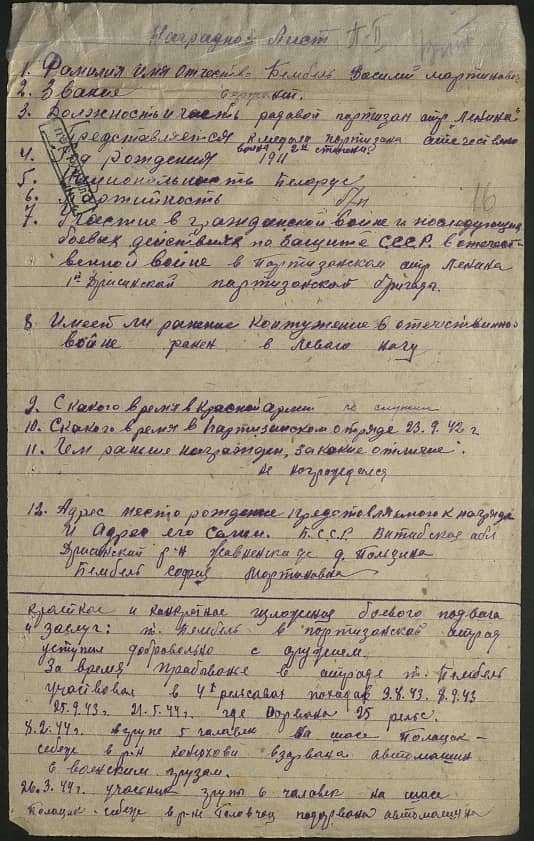 Наградной Лист
1. Фамилия Имя Отчество Бембель Василий Мартинович
2. Звание
3. Должность и часть рядовой партизан отр Ленина
Представляется к медали партизана отечествен
война 2й степени
4. Год рождения 1911
5. Национальность Белорус
6. Партийность б/п
16
7. Участие в гражданской войне и последующих
боевых действиях по защите СССР в отечест-
венной войне в партизанском отр Ленина
1й Дрисинской партизанской бригада.
8 Имеет ли ранение контужение в отечественной
войне ранен в левою ногу
9. С какого время в Красной армии не служил
10. С какого время в Партизанском отряде 23.9.42 г.
11. Чем раньше награжден, за какие отличие.
не награждался
12. Адрес место рождение представляемого к награде
и Адрес его семи. Б.С.С.Р. Витебская обл
Дрисинский р-н д.
Бембель София Мартиновна
краткое и конкретное изложения боевого подвига
и заслуг: т. Бембель в партизанский отряд
уступил добровольно с оружием.
За время прабывание в отряде т. Бембель
участвовал в 4х релсавах походах 3.8.43. 8.9.43
25.9.43 г. 21.5.44 г. где ворвана 25 релс.
8.2.44 г. в групе 5 человек на шасе Полацак-
себеж в р-н взарвана автомашин
с воинским грузам.
26.3.44 г. участник групы 6 человек на шасе
Полацак-себеж в р-не подорвана автомашина